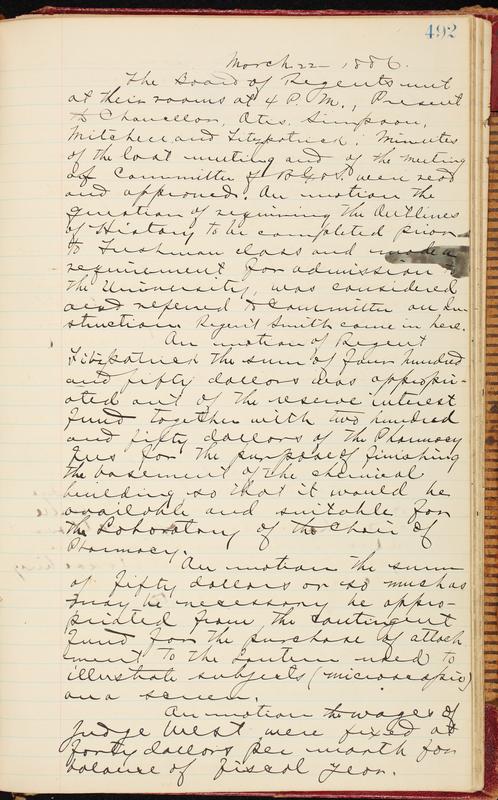 492
March 22 1886.
The Board of Regents met
at their rooms at 4 P.M., Present
Chancellor, Otis, Simpson,
Mitchell and Fitzpatrick. Minutes
of the last meeting and of the meeting
of Committee of were read
and approved. On motion the
question of requiring the Outlines
of History to be completed prior
to Freshman class and made a
requirement for admission
the University, was considered
and referred to Committee on In-
struction. Regent Smith came in here.
On motion of Regent
Fitzpatrick the sum of four hundred
and fifty dollars was appropri-
ated out of the reserve interest
fund together with two hundred
and fifty dollars of the Pharmacy
fees for the purpose of finishing
the basement of the chemical
building so that it would be
available and suitable for
the Laboratory of the Chair of
Pharmacy.
On motion the sum
of fifty dollars or so much as
may be necessary be appro-
priated from the contingent
fund for the purchase of attach
ment to the lantern used to
illustrate subjects (microscopic)
on a screen.
On motion the wages of
Judge West were fixed at
forty dollars per month for
balance of fiscal year.